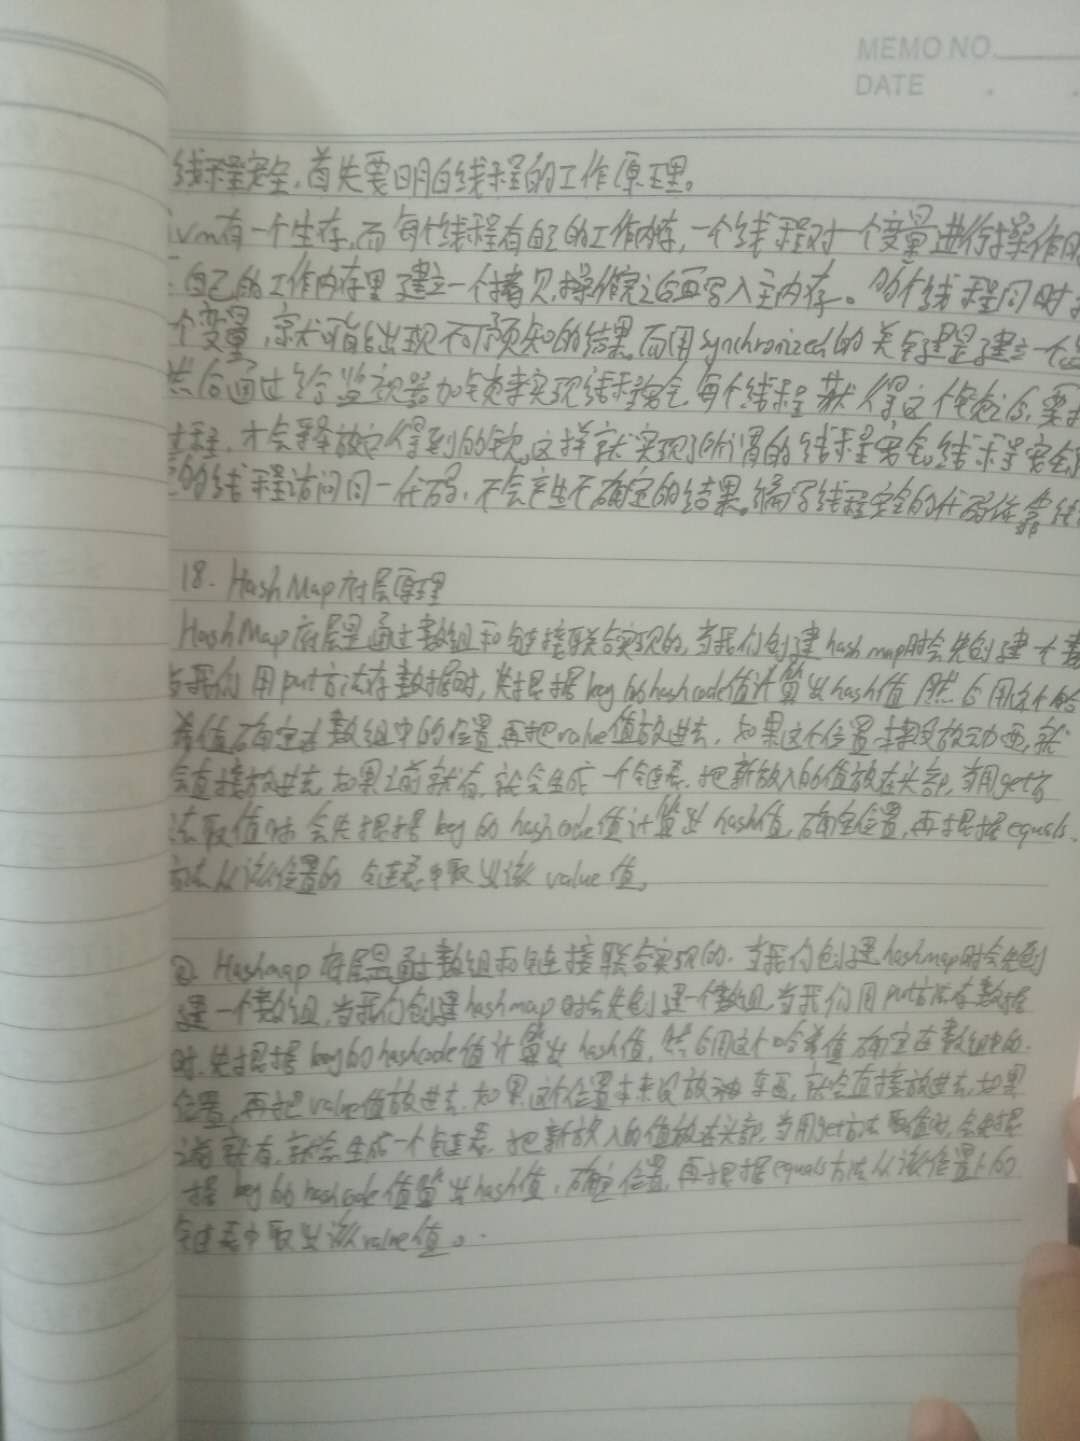 MEMO NO.
DATE
线程安全,首先要明白线程的工作原理。
jvm有一个主存,而每个线程有自己的工作内存,一个线程对一个变量进行操作时
自己的工作内存里建立一个拷贝,操作完之后再写入主内存。 线程同时
个变量,就可能出现不可预知的结果。而用synchronized的关键是建立一个
然后通过给监视器加锁来实现线程安全,每个线程获得这个锁之后,要
才会释放它得到的锁,这样就实现了所谓的线程安全。线程安全
的线程访问同一代码,不会产生不确定的结果。编写线程安全的代码依靠线
18. HashMap底层原理
HashMap底层是通过数组和链接联合实现的,当我们创建hashmap时会先创建一个数
当我们用put方法存数据时,先根据key的hashcode值计算出hash值,然后用这个哈
希值确定在数组中的位置,再把value值放进去,如果这个位置本来没放东西,就
会直接放进去,如果之前就有,就会生成一个链表,把新放入的值放在头部,当用get方
法取值时会先根据key的hashcode值计算出hash值,确定位置,再根据equals
方法从该位置的链表中取出该value值。
② Hashmap底层是通过数组和链接联合实现的,当我们创建hashmap时会先创
建一个数组,当我们创建hashmap时会先创建一个数组,当我们用put方法存数据
时,先根据key的hashcode值计算出hash值,然后用这个哈希值确定在数组中的
位置,再把value值放进去,如果这个位置本来没放 东西,就会直接放进去,如果
之前就有,就会生成一个链表,把新放入的值放在头部,当用get方法取值时,会先根
据key的hashcode值算出hash值,确定位置,再根据equals方法从该位置上的
链表中取出该value值。